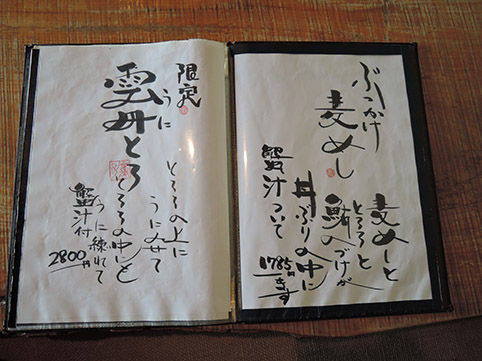 ぶっかけ
麦めし
麦めしと
とろろと
鮪のづけが
丼ぶりの中に
蟹汁ついて
1785円
きます
限定
うに
雲丹とろ
とろろの上に
うにのせて
とろろの中にと
うに練れて
蟹汁付
2800円